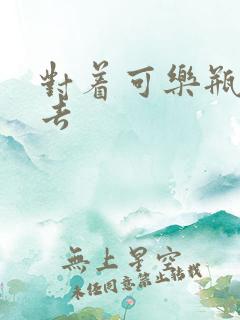 對着可樂瓶
去
無上星空
未经同意禁止转载